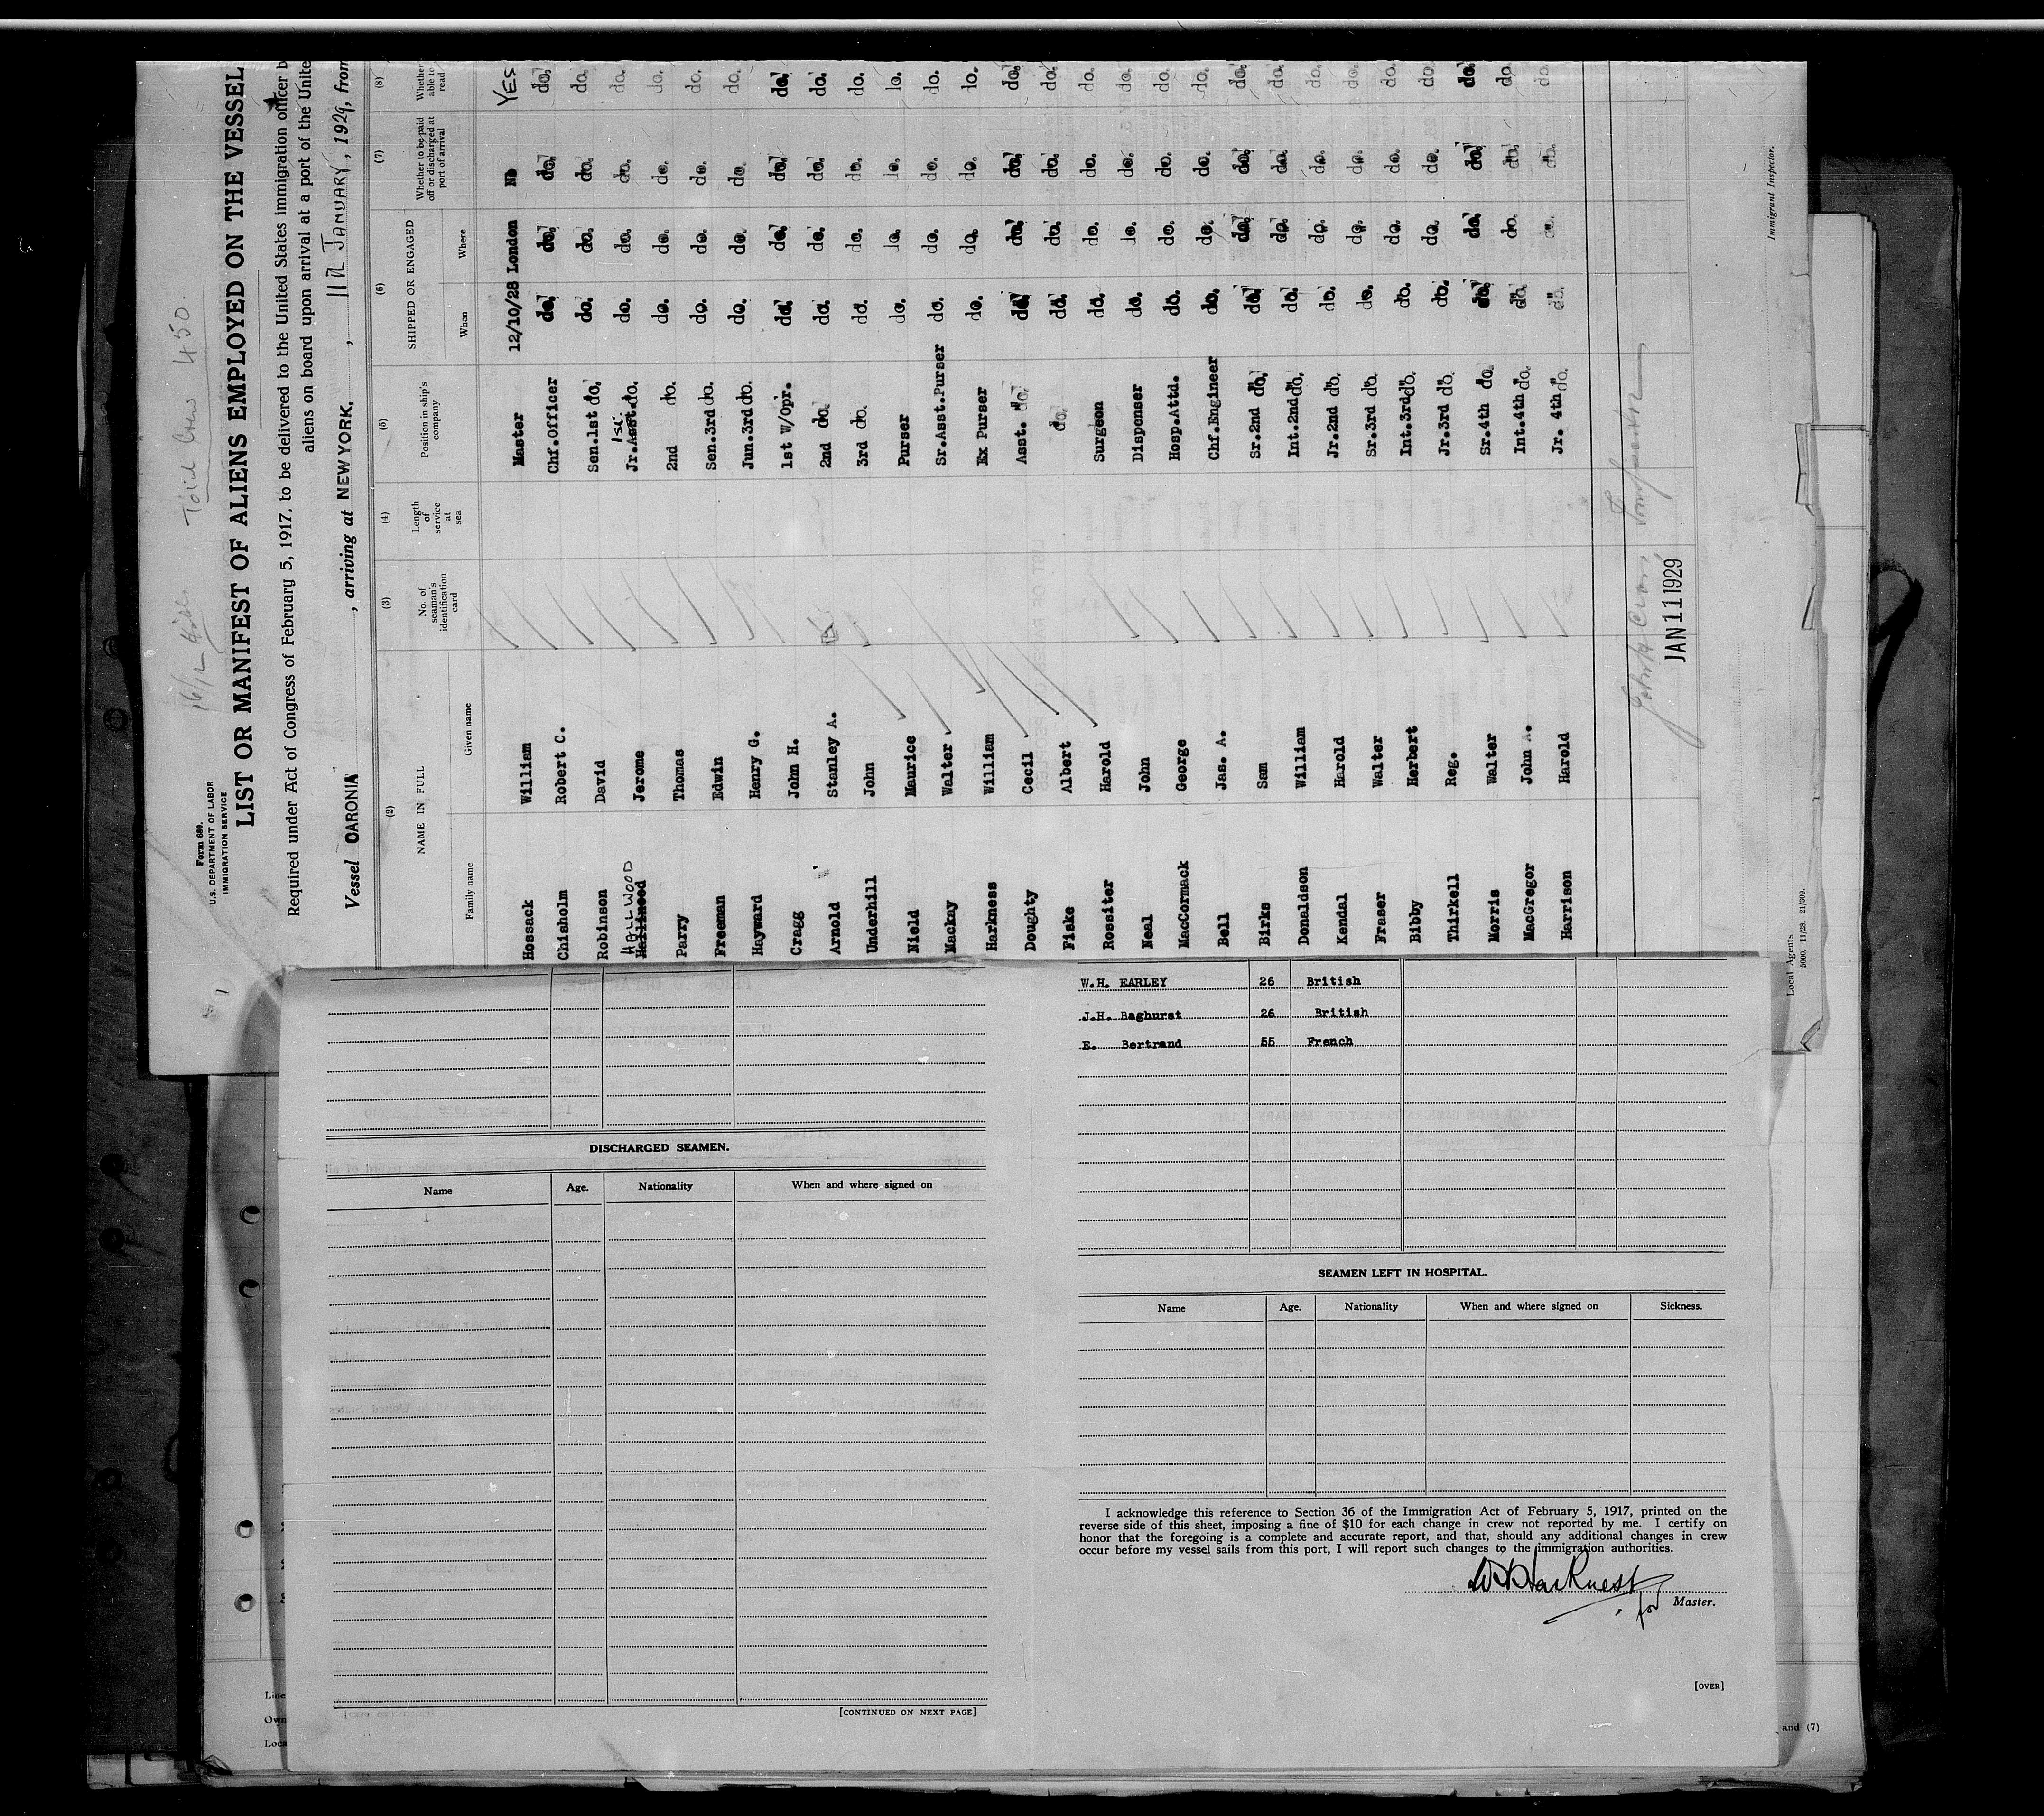 16/1
Total Crew 450.
Form 680.
U. S. DEPARTMENT OF LABOR
IMMIGRATION SERVICE
LIST OR MANIFEST OF ALIENS EMPLOYED ON THE VESSEL
Required under Act of Congress of February 5, 1917, to be delivered to the United States immigration officer b
aliens on board upon arrival at a port of the Unite
Vessel CARONIA , arriving at NEW YORK. , 11th JANUARY, 1929, from
(2) (3) (4) (5) (6) (7) (8)
NAME IN FULL No. of seaman's identification card Length of service at sea Position in ship's company SHIPPED OR ENGAGED Whether to be paid off or discharged at port of arrival Whether able to read
Family name Given name When Where
Hossack William Master 12/10/28 London No YES
Chisholm Robert C. Chf.Officer do. do. do. do.
Robinson David Sen.1st do. do. do. do. do.
HALLWOOD Jerome Jr.1st. do. do. do. do. do.
Parry Thomas 2nd do. do. do. do. do.
Freeman Edwin Sen.3rd do. do. do. do. do.
Hayward Henry G. Jun.3rd do. do. do. do. do.
Cragg John H. 1st W/Opr. do. do. do. do.
Arnold Stanley A. 2nd do. do. do. do. do.
Underhill John 3rd do. do. do. do. do.
Nield Maurice Purser do. do. do. do.
Mackay Walter Sr.Asst.Purser do. do. do. do.
Harkness William Ex Purser do. do. do. do.
Doughty Cecil Asst. do. do. do. do. do.
Fiske Albert do. do. do. do. do.
Rossiter Harold Surgeon do. do. do. do.
Neal John Dispenser do. do. do. do.
MacCormack George Hosp.Attd. do. do. do. do.
Bell Jas. A. Chf.Engineer do. do. do. do.
Birks Sam Sr.2nd do. do. do. do. do.
Donaldson William Int.2nd do. do. do. do. do.
Kendal Harold Jr.2nd do. do. do. do. do.
Fraser Walter Sr.3rd do. do. do. do. do.
Bibby Herbert Int.3rd do. do. do. do. do.
Thirkell Reg. Jr.3rd do. do. do. do. do.
Morris Walter Sr.4th do. do. do. do. do.
MacGregor John A. Int.4th do. do. do. do. do.
Harrison Harold Jr. 4th do. do. do. do. do.
JAN 11 1929
Immigrant Inspector.
Local Agents
5000. 11/28. 21/309.
W.H. EARLEY 26 British
J.H. Baghurst 26 British
E. Bertrand 55 French
DISCHARGED SEAMEN.
Name Age. Nationality When and where signed on
[CONTINUED ON NEXT PAGE]
SEAMEN LEFT IN HOSPITAL.
Name Age. Nationality When and where signed on Sickness.
I acknowledge this reference to Section 36 of the Immigration Act of February 5, 1917, printed on the
reverse side of this sheet, imposing a fine of $10 for each change in crew not reported by me. I certify on
honor that the foregoing is a complete and accurate report, and that, should any additional changes in crew
occur before my vessel sails from this port, I will report such changes to the immigration authorities.
W Harkness
for Master.
[OVER]
Line
Own
Loca
and (7)